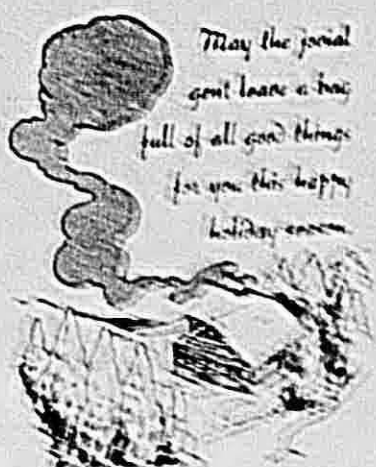 May the jovial
gent leave a bag
full of all good things
for you this happy
holiday season